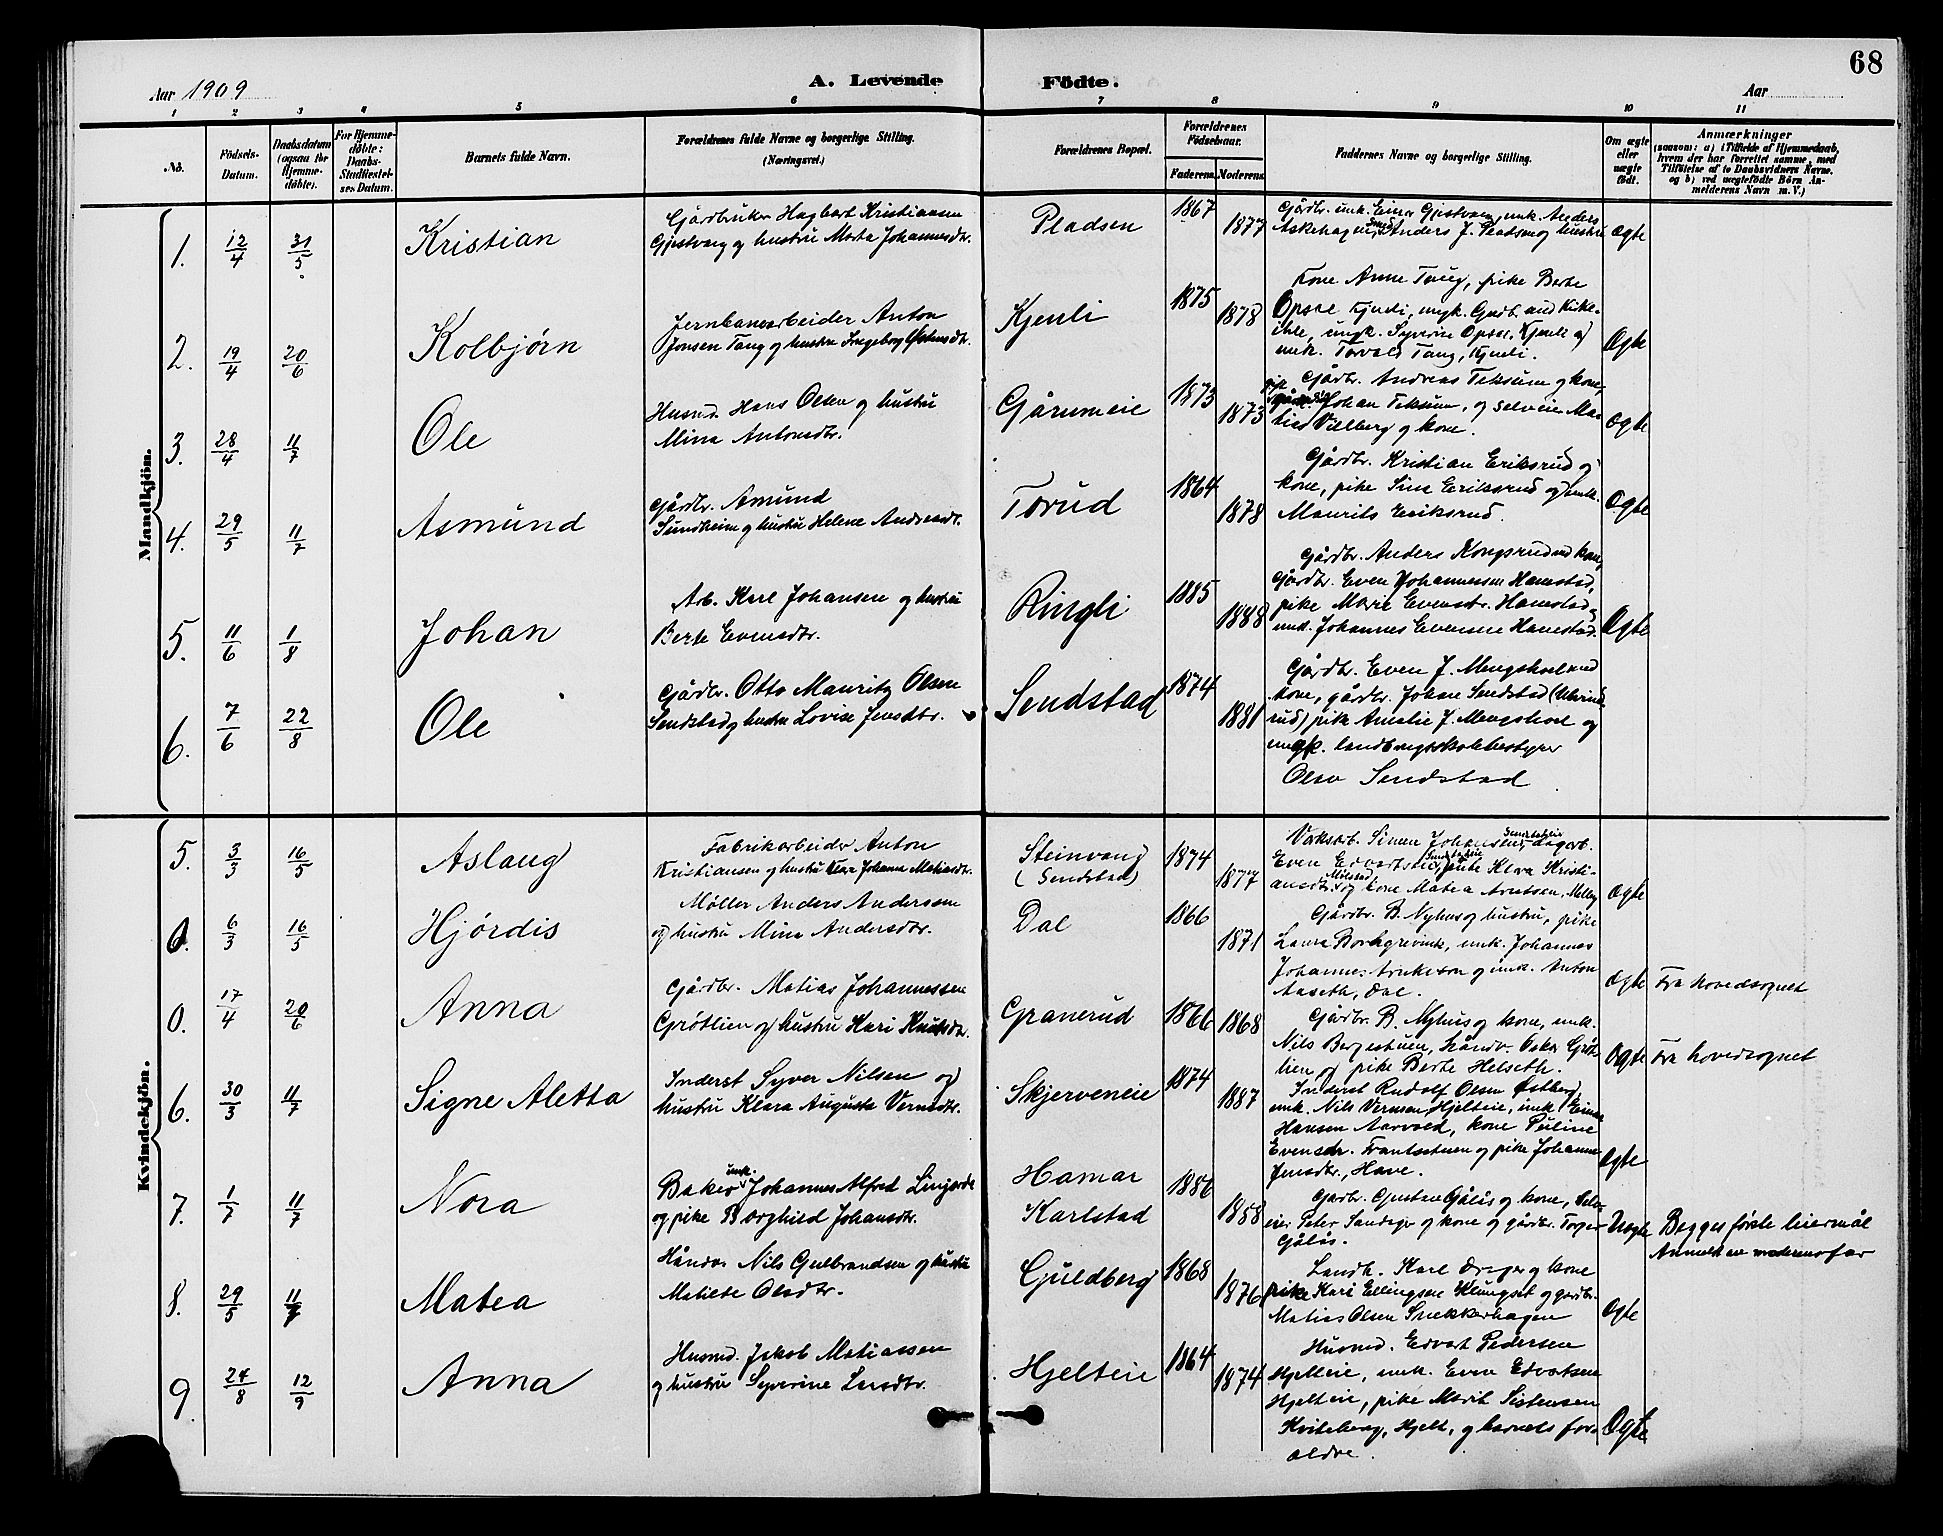 68
Aar 1909
A. Levende Födte.
Aar
1 2 3 4 5 6 7 8 9 10 11
No.
Födsels-Datum.
Daabsdatum (ogsaa for Hjemme-döbte).
For Hjemme-döbte: Daabs-Stadfæstel-ses Datum.
Barnets fulde Navn.
Forældrenes fulde Navne og borgerlige Stilling. (Næringsvei.)
Forældrenes Bopæl.
Forældrenes Födselsaar.
Faderens. Moderens.
Faddernes Navne og borgerlige Stilling.
Om ægte eller uægte födt.
Anmærkninger
(saasom: a) i Tilfælde af Hjemmedaab,
hvem der har forrettet samme, med
Tilföielse af to Daabsvidners Navne.
og b) ved uægtefödte Börn An-
melderens Navn m. V.)
Mandkjön.
1. 12/4 31/5 Kristian
Gårdbruker Hagbart Kristiansen
Gjestvang og hustru Marta Johannesdtr.
Pladsen 1867 1877
Gårdbr. umk. Einar Gjestvang, umk. Anders
Askehagen, Anders J. Pladsen og hustru
Ægte
2. 19/4 20/6 Kolbjörn
Jernbanearbeider Anton
Jonsen Taug og hustru Ingeborg Østensdtr.
Kjenli 1875 1878
Kone Anne Taug, pike Berte
Opsæ, Kjenli, ungk.
ungk. Syverin Opsæ, Kjenli og
umk. Torvald Taug, Kjenli.
Ægte
3. 28/4 11/7 Ole
Husmd. Hans Olsen og hustru
Mina Antonsdtr.
Gårumeie 1873 1873
Gårdbr. Andreas Teksum og kone,
Johan Teksum, og selveier Ma-
tias Vellberg og kone.
Ægte
4. 29/5 11/7 Asmund
Gårdbr. Amund
Sundheim og hustru Helene Andreasdtr.
Torud 1864 1878
Gårdbr. Kristian Eriksrud og
kone, pike Sina Eriksrud og umk.
Maurits Eriksrud.
Ægte
5. 11/6 1/8 Johan
Arb. Karl Johansen og hustru
Berte Evensdtr.
Ringli 1885 1888
Gårdbr. Anders Kongsrud og kone,
gårdbr. Even Johannessen Hamstad,
pike Marie Evensdtr. Hamstad,
umk. Johannes Evensen Hamstad.
Ægte
6. 7/6 22/8 Ole
Gårdbr. Otto Mauritz Olsen
Sendstad og hustru Lovise Jensdtr.
Sendstad 1874 1881
Gårdbr. Even J. Mengshoel med
kone, gårdbr. Johan Sendstad (Ulvins-
rud), pike Amalie J. Mengshoel og
ungk. landbrugsskolebestyrer
Olav Sendstad
Kvindekjön.
5. 3/3 16/5 Aslaug
Fabrikarbeider Anton
Kristiansen og hustru Klara Johanna Matiasdtr.
Steinvang
(Sendstad) 1874 1877
Verksarb. Simen Johansen, Sendstadeie, dagarb.
Even Edvartsen, Sendstadeie, pike Klara Kristi-
ansdtr. Mælstad, og kone Matea Arntsen, Mæleng
Ægte
0. 6/3 16/5 Hjördis
Møller Anders Andersen
og hustru Mina Andersdtr.
Dal 1866 1871
Gårdbr. B. Nyhus og hustru, pike
Laura Borchgrevink, umk. Johannes
Johannes Arnkvern og umk. Anton
Aaseth, Dal.
Ægte Fra hovedsognet
0. 17/4 20/6 Anna
Gårdbr. Matias Johannessen
Grötlien og hustru Kari Knutsdtr.
Granerud 1866 1868
Gårdbr. B. Nyhus og kone, umk.
Nils Bergestuen, håndv. Oskar Gröt-
lien og pike Berte Helseth.
Ægte Fra hovedsognet
6. 30/3 11/7 Signe Aletta
Inderst Syver Nilsen og
hustru Klara Augusta Vernsdtr.
Skjerveneie 1874 1887
Inderst Rudolf Olsen Østberg,
umk. Nils Vernsen, Hjelteie, umk. Einar
Hansen Aarvold, kone Pauline
Evensdtr. Frantsstuen og pike Johanne
Jensdtr., Have.
Ægte
7. 1/7 11/7 Nora
Baker umk. Johannes Alfred Lingjerde
og pike Borghild Johansdtr.
Hamar
Karlstad 1886 1858
Gårdbr. Gustav Gålås og kone, selv-
eier Peter Sandeger og kone og gårdbr. Torger
Gålås.
Uægte Begges förste leiermål
Anmelder moderens far
8. 29/5 11/7 Matea
Håndv. Nils Gulbrandsen og hustru
Matilde Olsdtr.
Guldberg 1868 1876
Landh. Karl Dræger og kone
pike Kari Ellingsen Klungset og gårdbr.
Matias Olsen Snekkerhagen
Ægte
9. 24/8 12/9 Anna
Husmd. Jakob Matiassen
og hustru Syverine Larsdtr.
Hjelteie 1864 1874
Husmd. Edvart Pedersen
Hjelteie, umk. Even Edvartsen
Hjelteie, pike Marit Sistensen
Kviteberg, Hjelt, og barnets for-
ældre.
Ægte